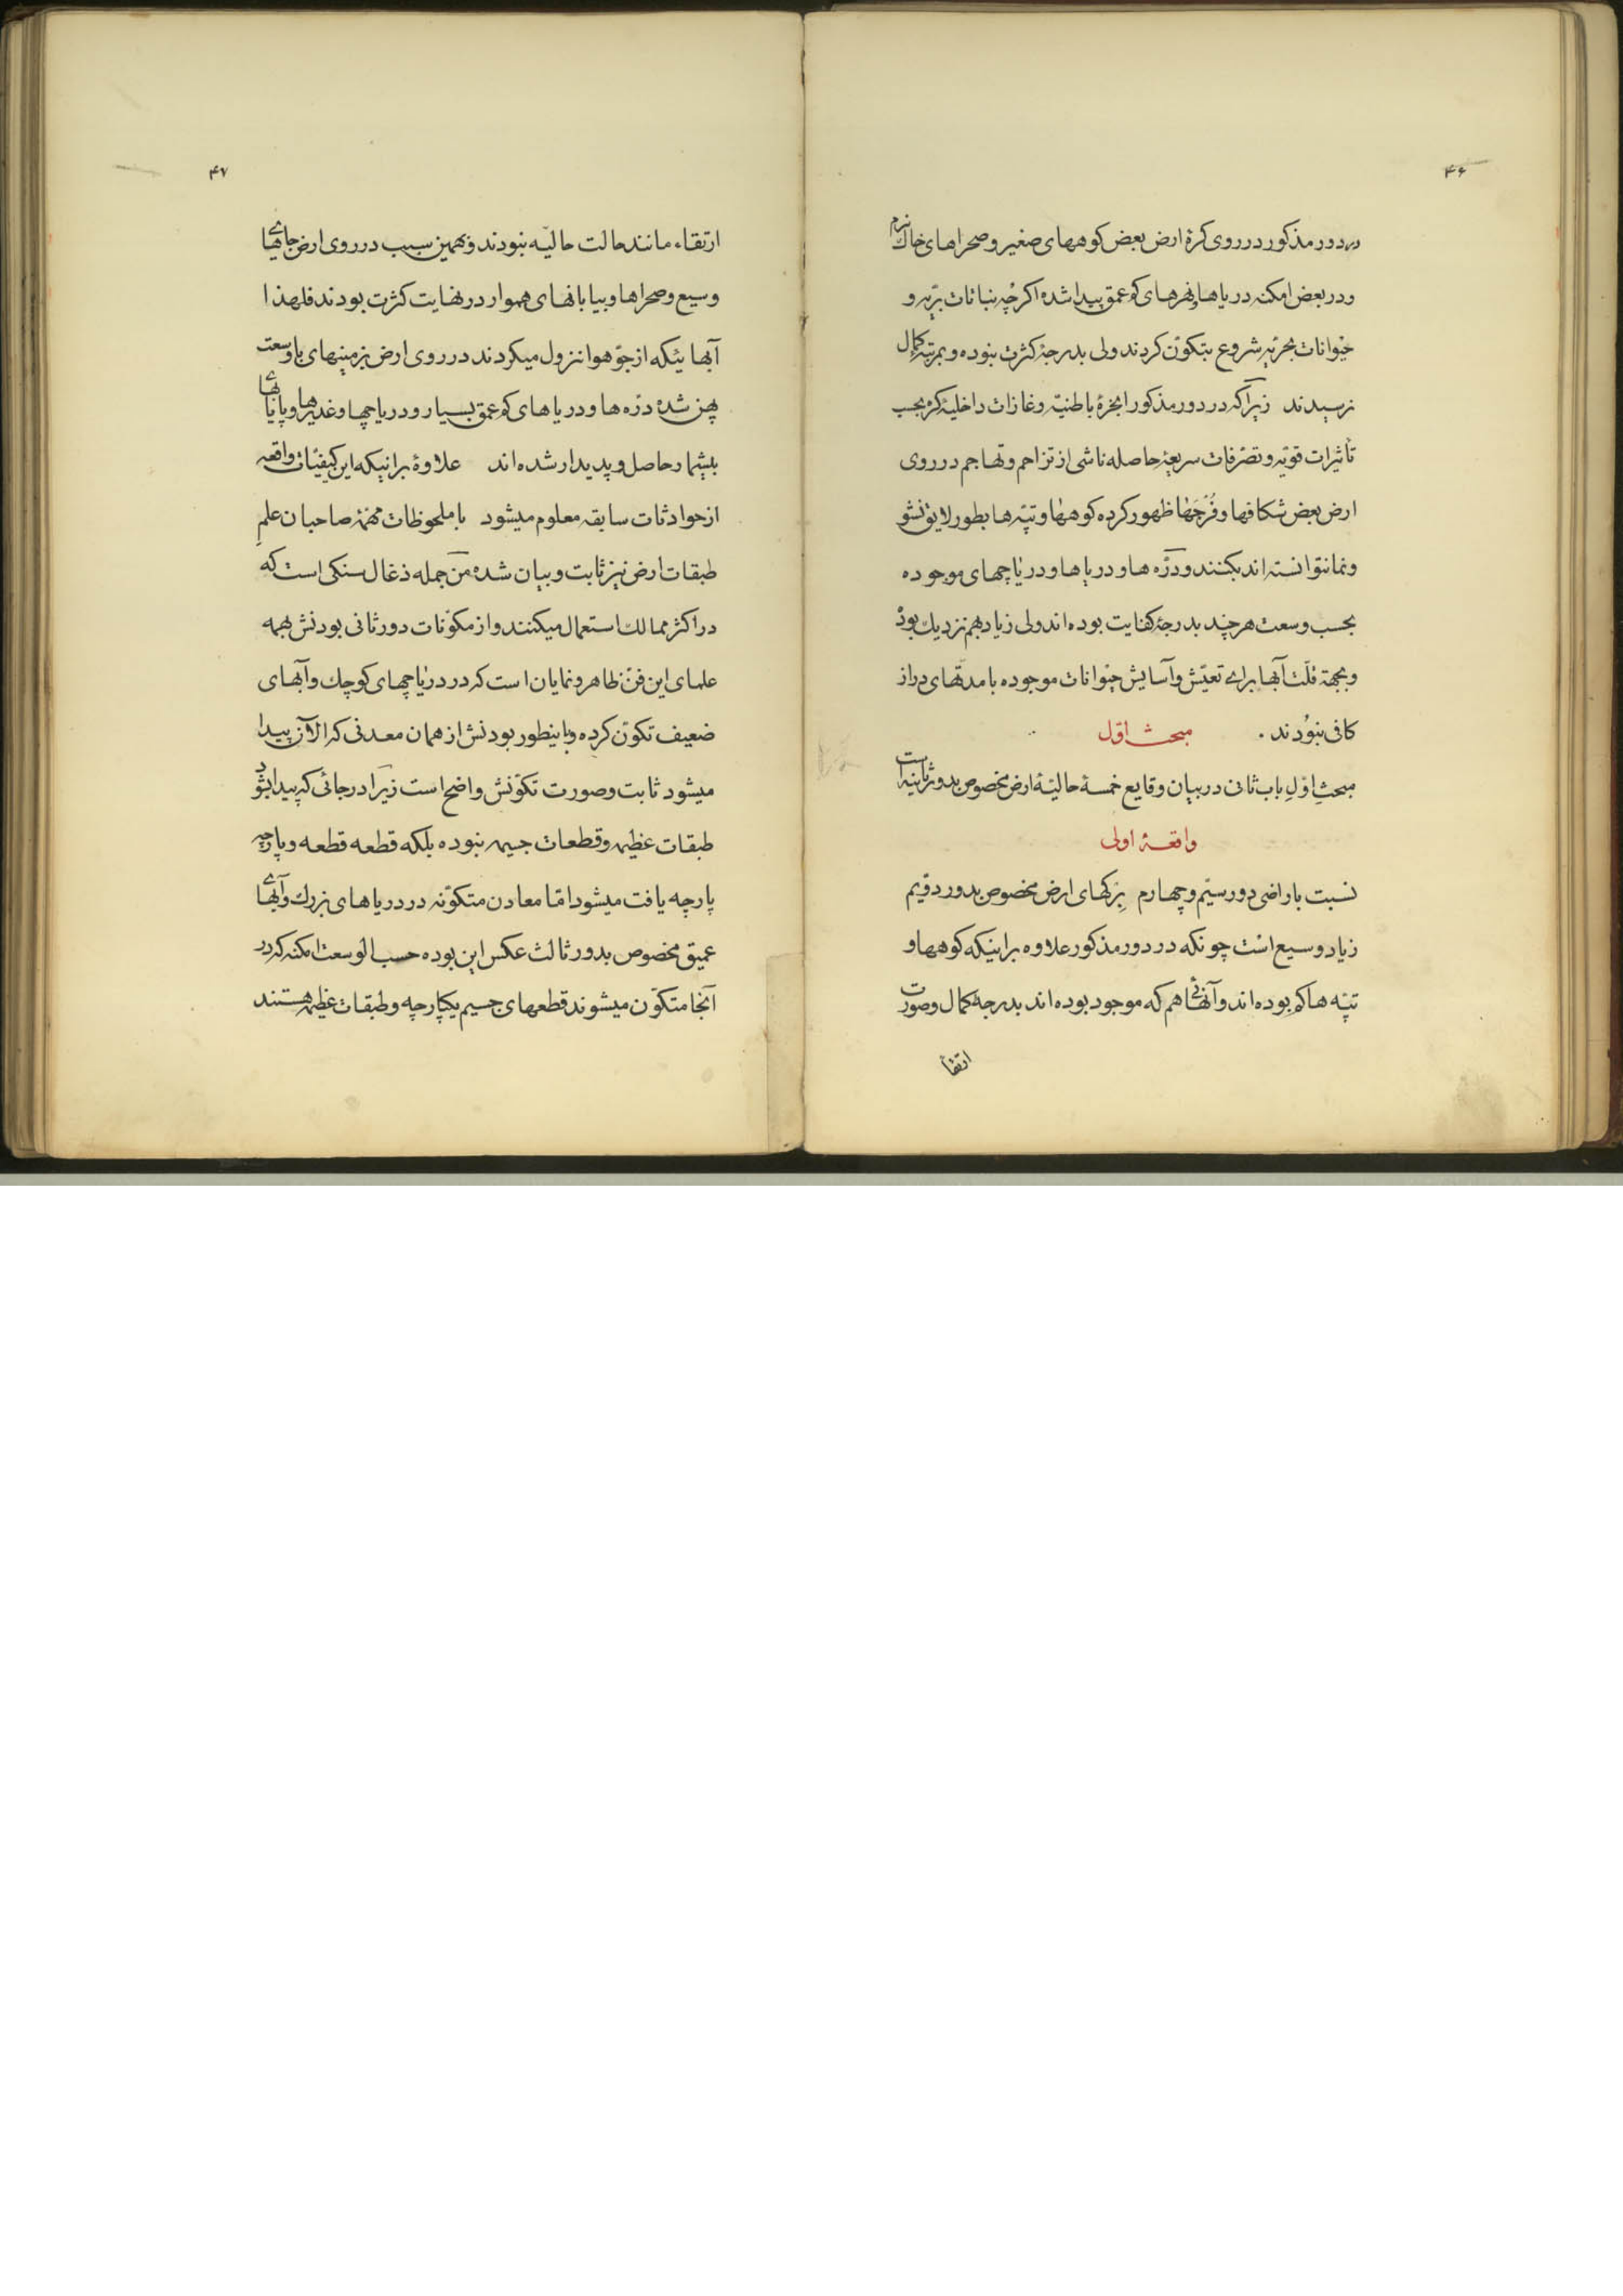 ۴۶
در دور مذکور در روی کرهٔ ارض بعض کوههای صغیر و صحراهای خاک نرم
و در بعض امکنه دریاها و نهرهای کم عمق پیدا شده اگرچه نباتات برّیه و
حیوانات بحریّه شروع بتکوّن کردند ولی بدرجهٔ کثرت نبوده و بمرتبهٔ کمال
نرسیدند زیرا که در دور مذکور ابخرهٔ باطنیّه و غازات داخلیهٔ کره بحسب
تأثیرات قویّه و تصرّفات سریعهٔ حاصله ناشی از تزاحم و تهاجم در روی
ارض بعض شکافها و فُرجَها ظهور کرده کوهها و تپّه ها بطور لایق نشو
و نما نتوانسته اند بکنند و درّه ها و دریاها و دریاچهای موجوده
بحسب وسعت هر چند بدرجهٔ کفایت بوده اند ولی زیاد بهم نزدیک بوده
و بجهة قلّت آبها برای تعیّش و آسایش حیوانات موجوده با مدتهای دراز
کافی نبودند .
مبحث اول
مبحثِ اوّلِ باب ثانی در بیان وقایع خمسهٔ حالیّهٔ ارض مخصوص بدور ثانیه است
واقعهٔ اولی
نسبت باراضی دور سیّم و چهارم بِرَکهای ارض مخصوص بدور دویّم
زیاد وسیع است چونکه در دور مذکور علاوه براینکه کوهها و
تپّه ها کم بوده اند و آنهائی هم که موجود بوده اند بدرجهٔ کمال و صورت
ارتقاء
۴۷
ارتقاء مانند حالت حالیّه نبودند و بهمین سبب در روی ارض جاهای
وسیع و صحراها و بیابانهای هموار در نهایت کثرت بودند فلهذا
آبهائیکه از جوّ هوا نزول میکردند در روی ارض بزمینهای با وسعت
پهن شده درّه ها و دریاهای کم عمق بسیار و دریاچها و غدیرها و پایابهای
بیشمار حاصل و پدیدار شده اند علاوهٔ براینکه این کیفیّات واقعه
از حوادثات سابقه معلوم میشود با ملحوظات مهمّهٔ صاحبان علمِ
طبقات ارض نیز ثابت و بیان شده من جمله ذغال سنگی است که
در اکثر ممالک استعمال میکنند و از مکوّنات دور ثانی بودنش بهمه
علمای این فنّ ظاهر و نمایان است که در دریاچهای کوچک و آبهای
ضعیف تکوّن کرده و باینطور بودنش از همان معدنی که الآن پیدا
میشود ثابت و صورت تکوّنش واضح است زیرا در جائی که پیدا بشود
طبقات عظیمه و قطعات جسیمه نبوده بلکه قطعه قطعه و پارچه
پارچه یافت میشود امّا معادن متکوّنه در دریاهای بزرک و آبهای
عمیق مخصوص بدور ثالث عکس این بوده حسب الوسعت امکنه که در
آنجا متکوّن میشوند قطعهای جسیم یکپارچه و طبقات عظیمه هستند